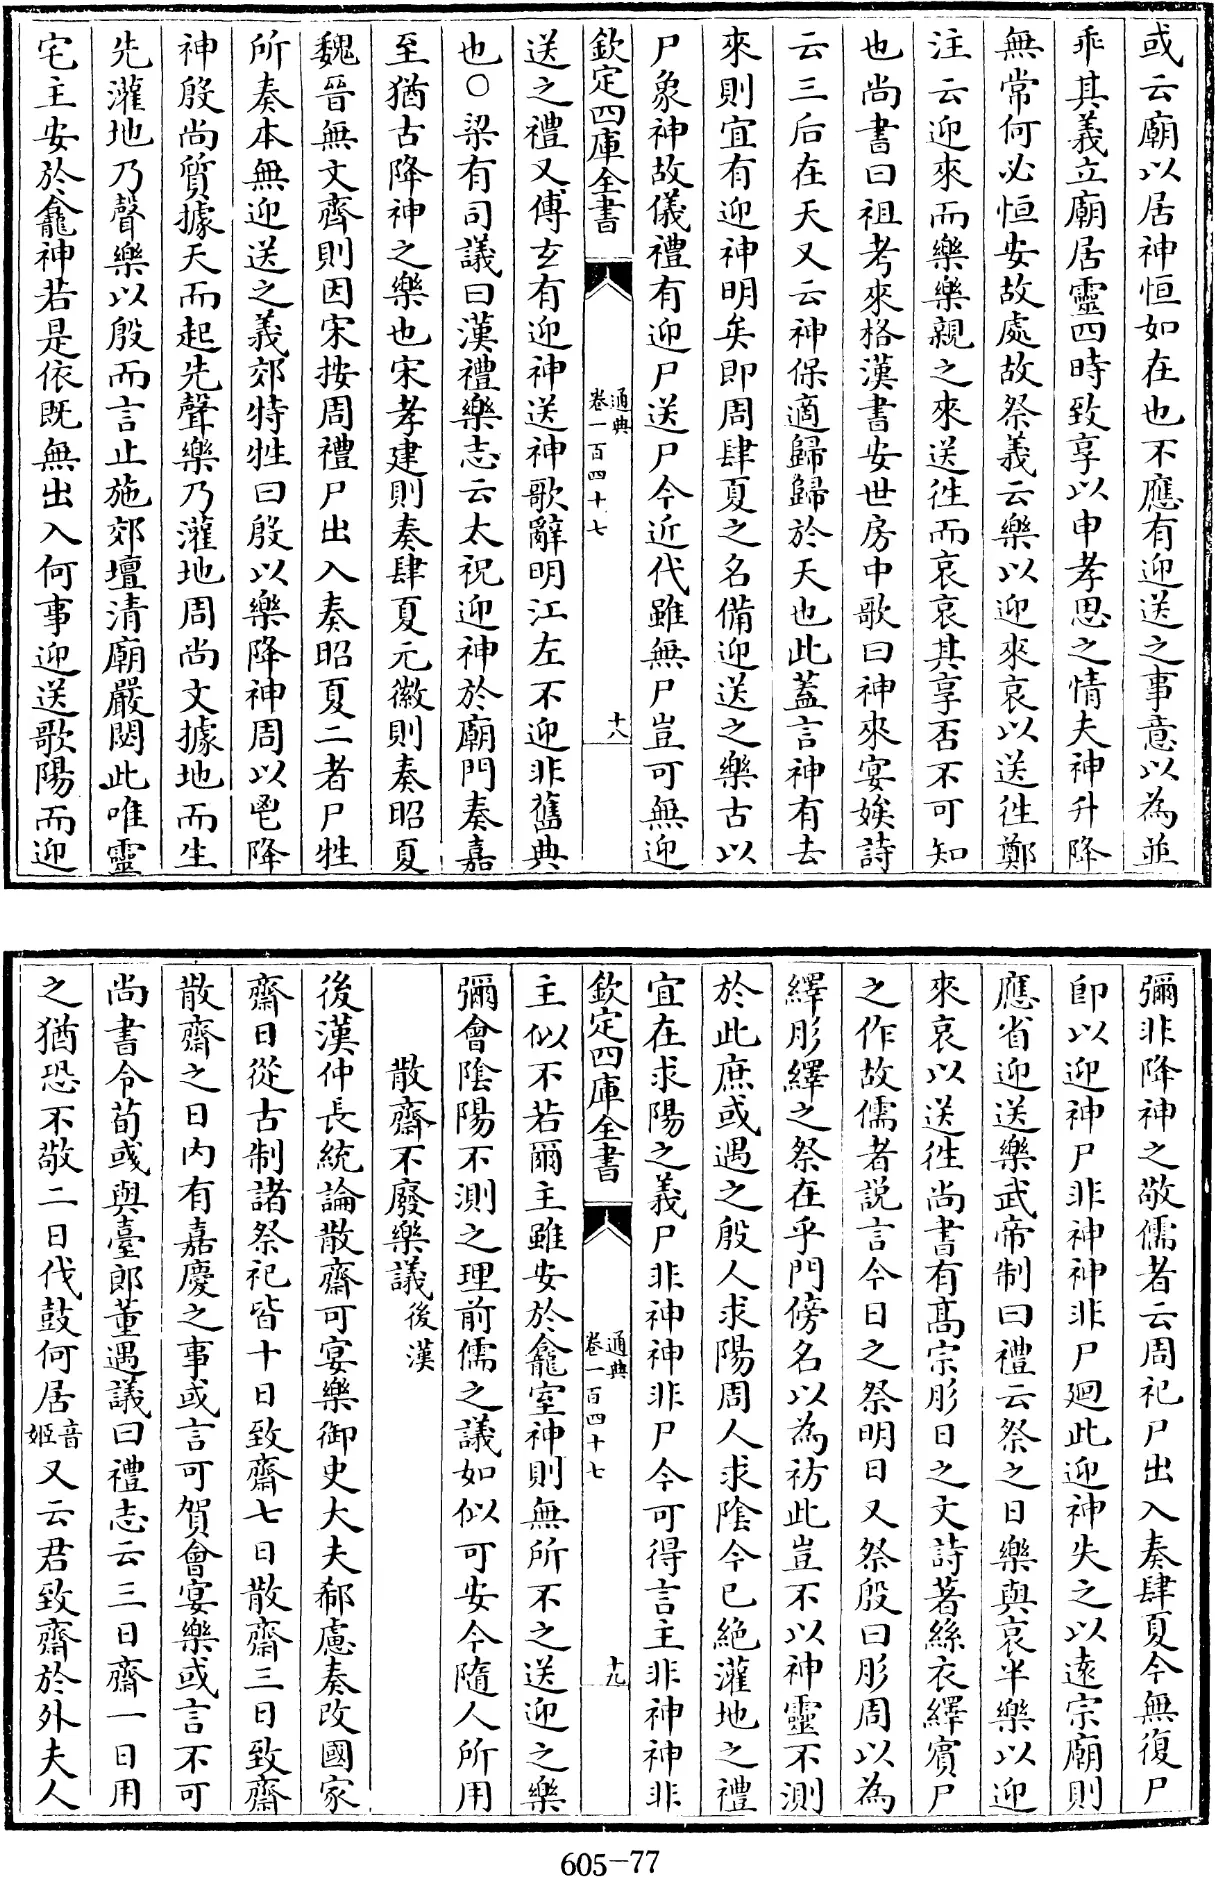 或云廟以居神恒如在也不應有迎送之事意以為並
乖其義立廟居靈四時致享以申孝思之情夫神升降
無常何必恒安故處故祭義云樂以迎來哀以送徃鄭
注云迎來而樂樂親之來送徃而哀哀其享否不可知
也尚書曰祖考來格漢書安世房中歌曰神來宴娭詩
云三后在天又云神保適歸歸於天也此蓋言神有去
來則宜有迎神明矣即周肆夏之名備迎送之樂古以
尸象神故儀禮有迎尸送尸今近代雖無尸豈可無迎
欽定四庫全書
通典
卷一百四十七
十八
送之禮又傅玄有迎神送神歌辭明江左不迎非舊典
也○梁有司議曰漢禮樂志云太祝迎神於廟門奏嘉
至猶古降神之樂也宋孝建則奏肆夏元徽則奏昭夏
魏晉無文齊則因宋按周禮尸出入奏昭夏二者尸牲
所奏本無迎送之義郊特牲曰殷以樂降神周以鬯降
神殷尚質據天而起先聲樂乃灌地周尚文據地而生
先灌地乃聲樂以殷而言止施郊壇清廟嚴閟此唯靈
宅主安於龕神若是依既無出入何事迎送歌陽而迎
彌非降神之敬儒者云周祀尸出入奏肆夏今無復尸
卽以迎神尸非神神非尸廻此迎神失之以遠宗廟則
應省迎送樂武帝制曰禮云祭之日樂與哀半樂以迎
來哀以送徃尚書有髙宗肜日之文詩著絲衣繹賓尸
之作故儒者説言今日之祭明日又祭殷曰肜周以為
繹肜繹之祭在乎門傍名以為祊此豈不以神靈不測
於此庶或遇之殷人求陽周人求陰今已絶灌地之禮
宜在求陽之義尸非神神非尸今可得言主非神神非
欽定四庫全書
通典
卷一百四十七
十九
主似不若爾主雖安於龕室神則無所不之送迎之樂
彌會陰陽不測之理前儒之議如似可安今隨人所用
散齋不廢樂議後漢
後漢仲長統論散齋可宴樂御史大夫郗慮奏改國家
齋日從古制諸祭祀皆十日致齋七日散齋三日致齋
散齋之日内有嘉慶之事或言可賀會宴樂或言不可
尚書令荀彧與臺郎董遇議曰禮志云三日齋一日用
之猶恐不敬二日伐鼓何居音姬又云君致齋於外夫人
605-77